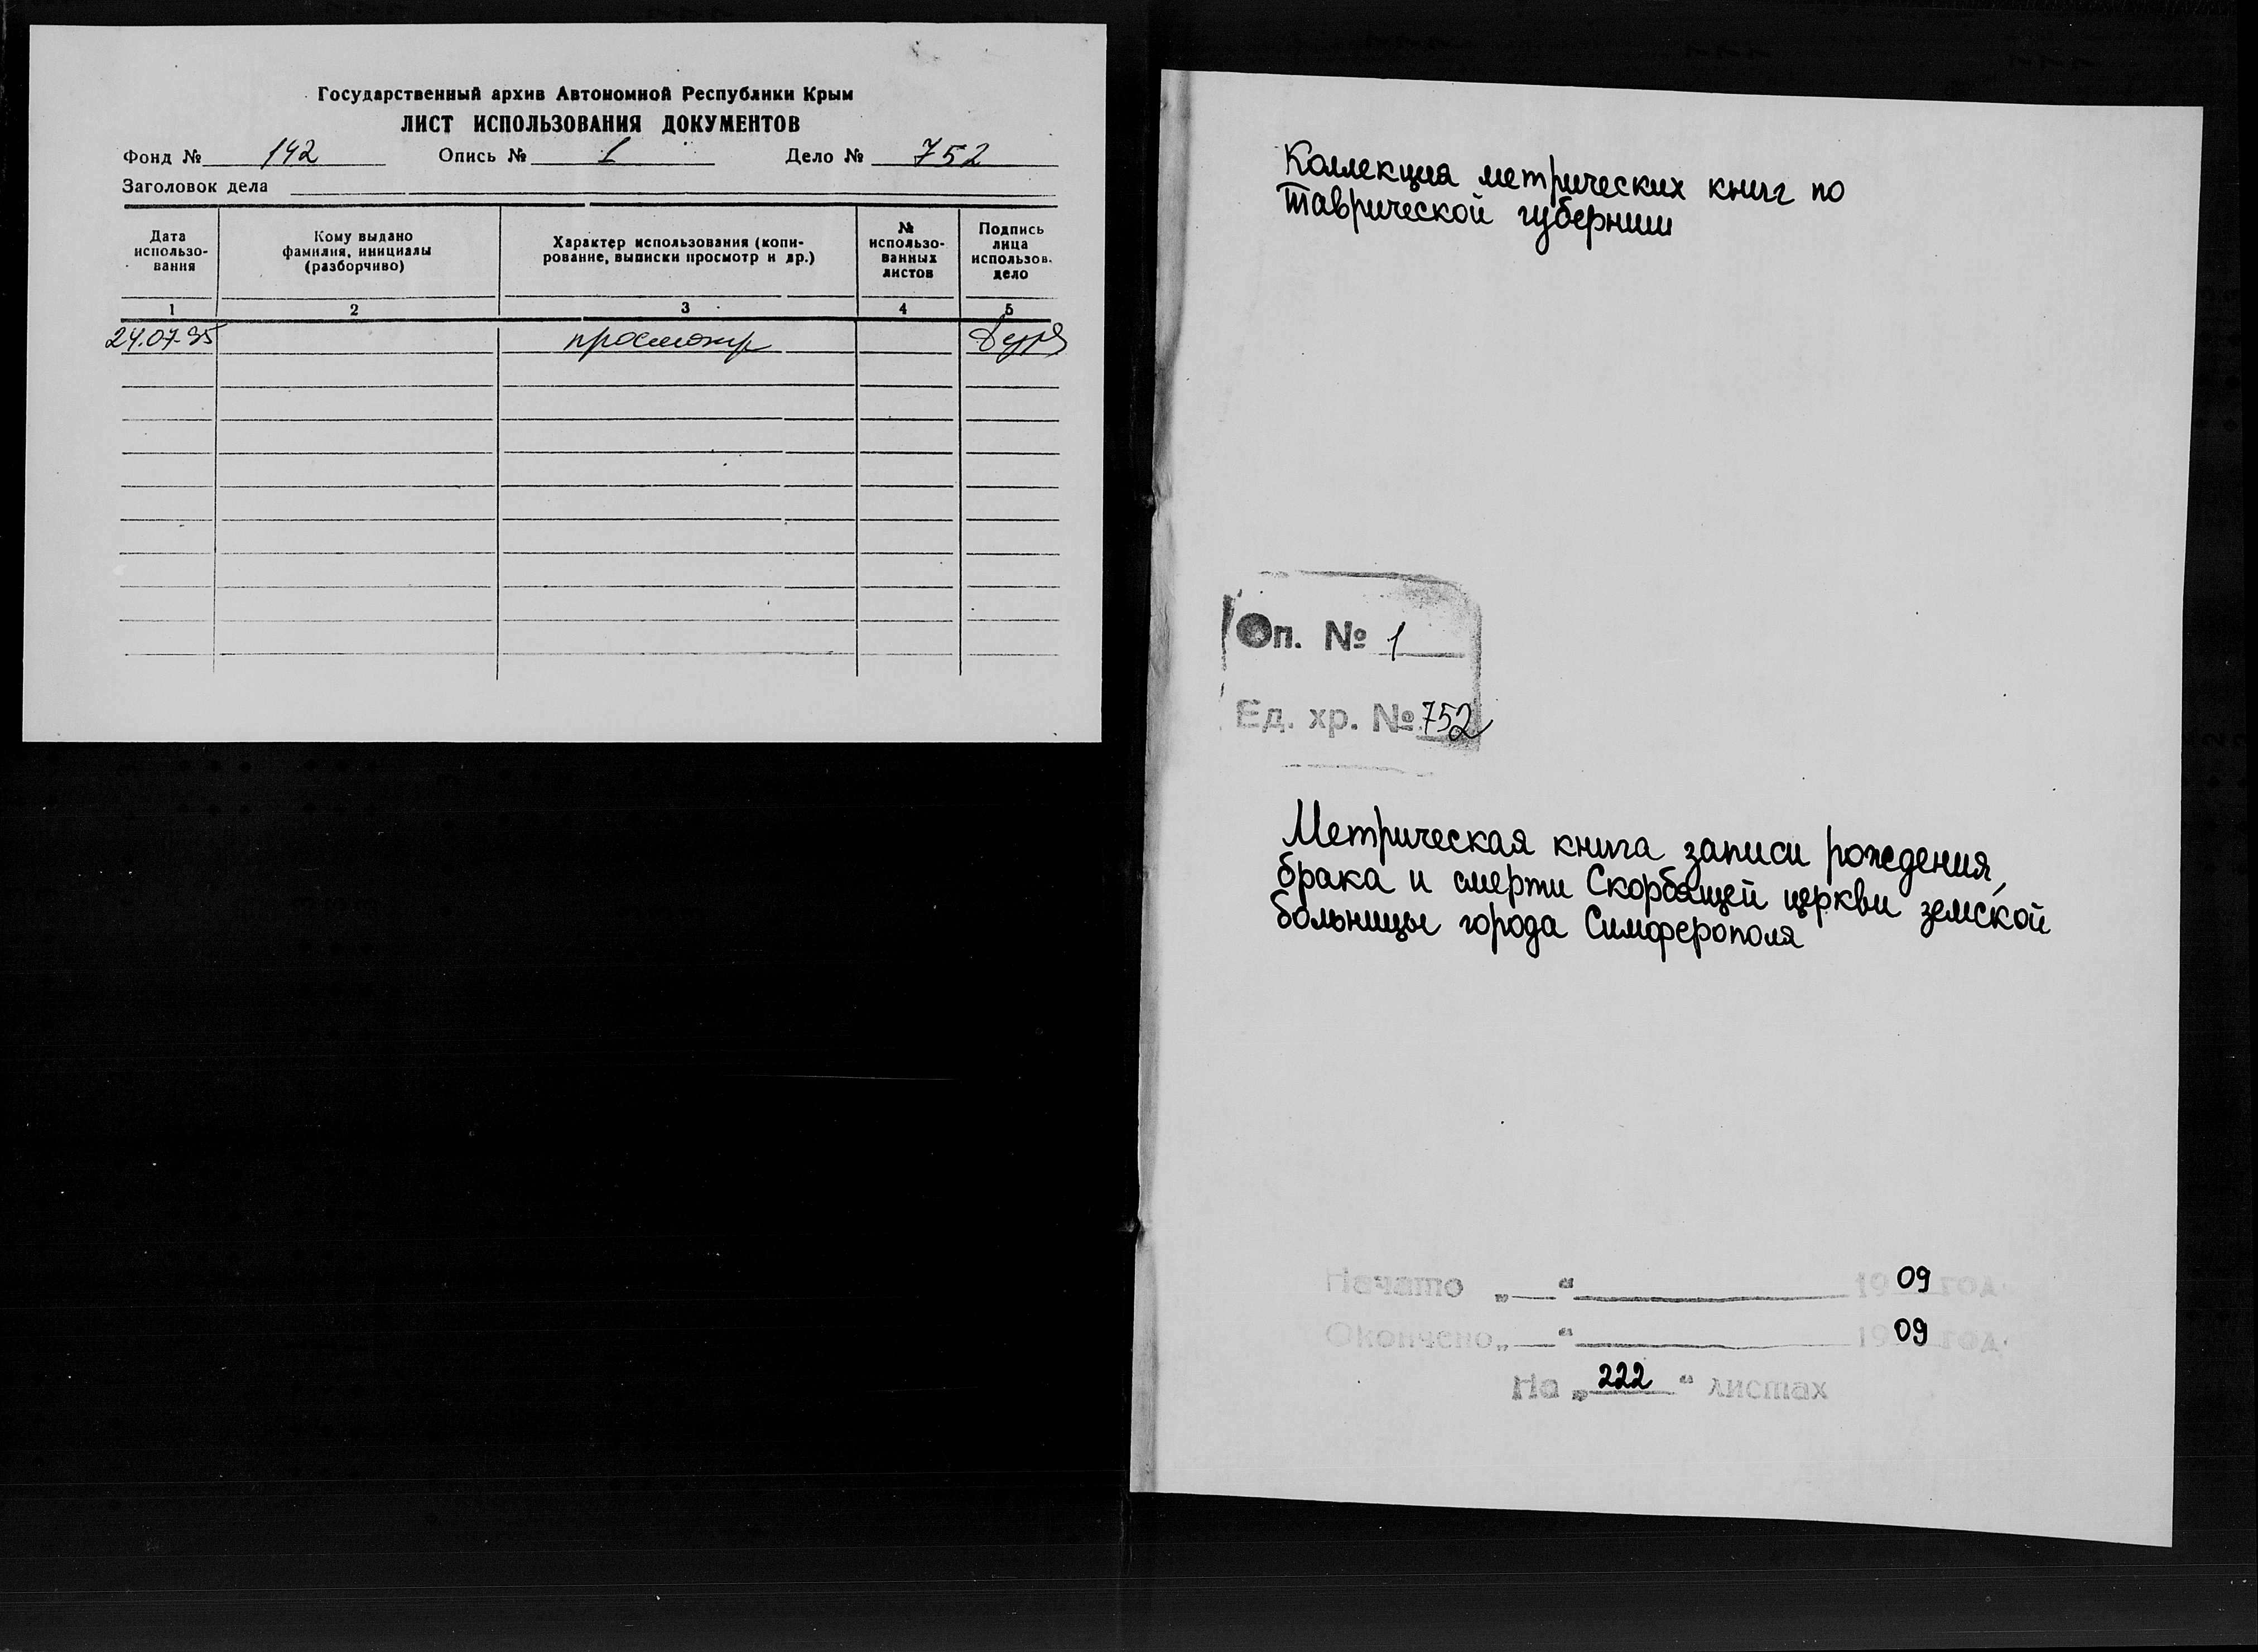 Государственный архив Автономной Республики Крым
ЛИСТ ИСПОЛЬЗОВАНИЯ ДОКУМЕНТОВ
Фонд № 142 Опись № 1 Дело № 752
Заголовок дела
Дата использо-вания
Кому выдано фамилия, инициалы (разборчиво)
Характер использования (копи-рование, выписки просмотр и др.)
№ использо-ванных листов
Подпись лица использов. дело
1 2 3 4 5
24.07.95 просмотр
Коллекция метрических книг по
Таврической губернии
Оп. № 1
Ед. хр. № 752
Метрическая книга записи рождения,
брака и смерти Скорбящей церкви земской
больницы города Симферополя
Начато „ “ 1909 год
Окончено „ “ 1909 год
На „222“ листах